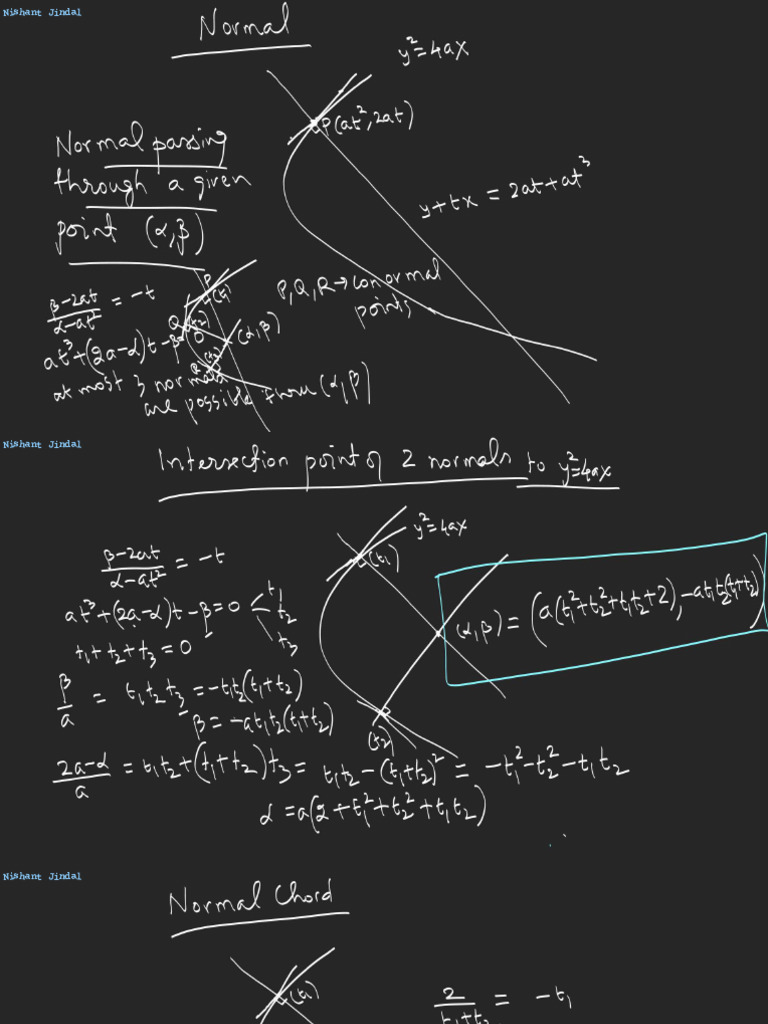 Nishant Jindal
Normal
y²=4ax
P(at²,2at)
Normal passing
through a given
point (α,β)
y+tx = 2at+at³
P,Q,R→conormal
points
(β-2at)/(α-at²) = -t
P
(t₁)
Q
(t₂)
(α,β)
at³+(2a-α)t-β=0
at most 3 normals
are possible thru (α,β)
Nishant Jindal
Intersection point of 2 normals to y²=4ax
y²=4ax
(t₁)
(β-2at)/(α-at²) = -t
at³+(2a-α)t-β=0 t₁ t₂ t₃
(α,β) = (a(t₁²+t₂²+t₁t₂+2), -at₁t₂(t₁+t₂))
t₁+t₂+t₃=0
β/a = t₁t₂t₃ = -t₁t₂(t₁+t₂)
β = -at₁t₂(t₁+t₂)
(t₂)
(2a-α)/a = t₁t₂+(t₁+t₂)t₃ = t₁t₂-(t₁+t₂)² = -t₁²-t₂²-t₁t₂
α = a(2+t₁²+t₂²+t₁t₂)
Nishant Jindal
Normal Chord
(t₁)
2/(t₁+t₂) = -t₁